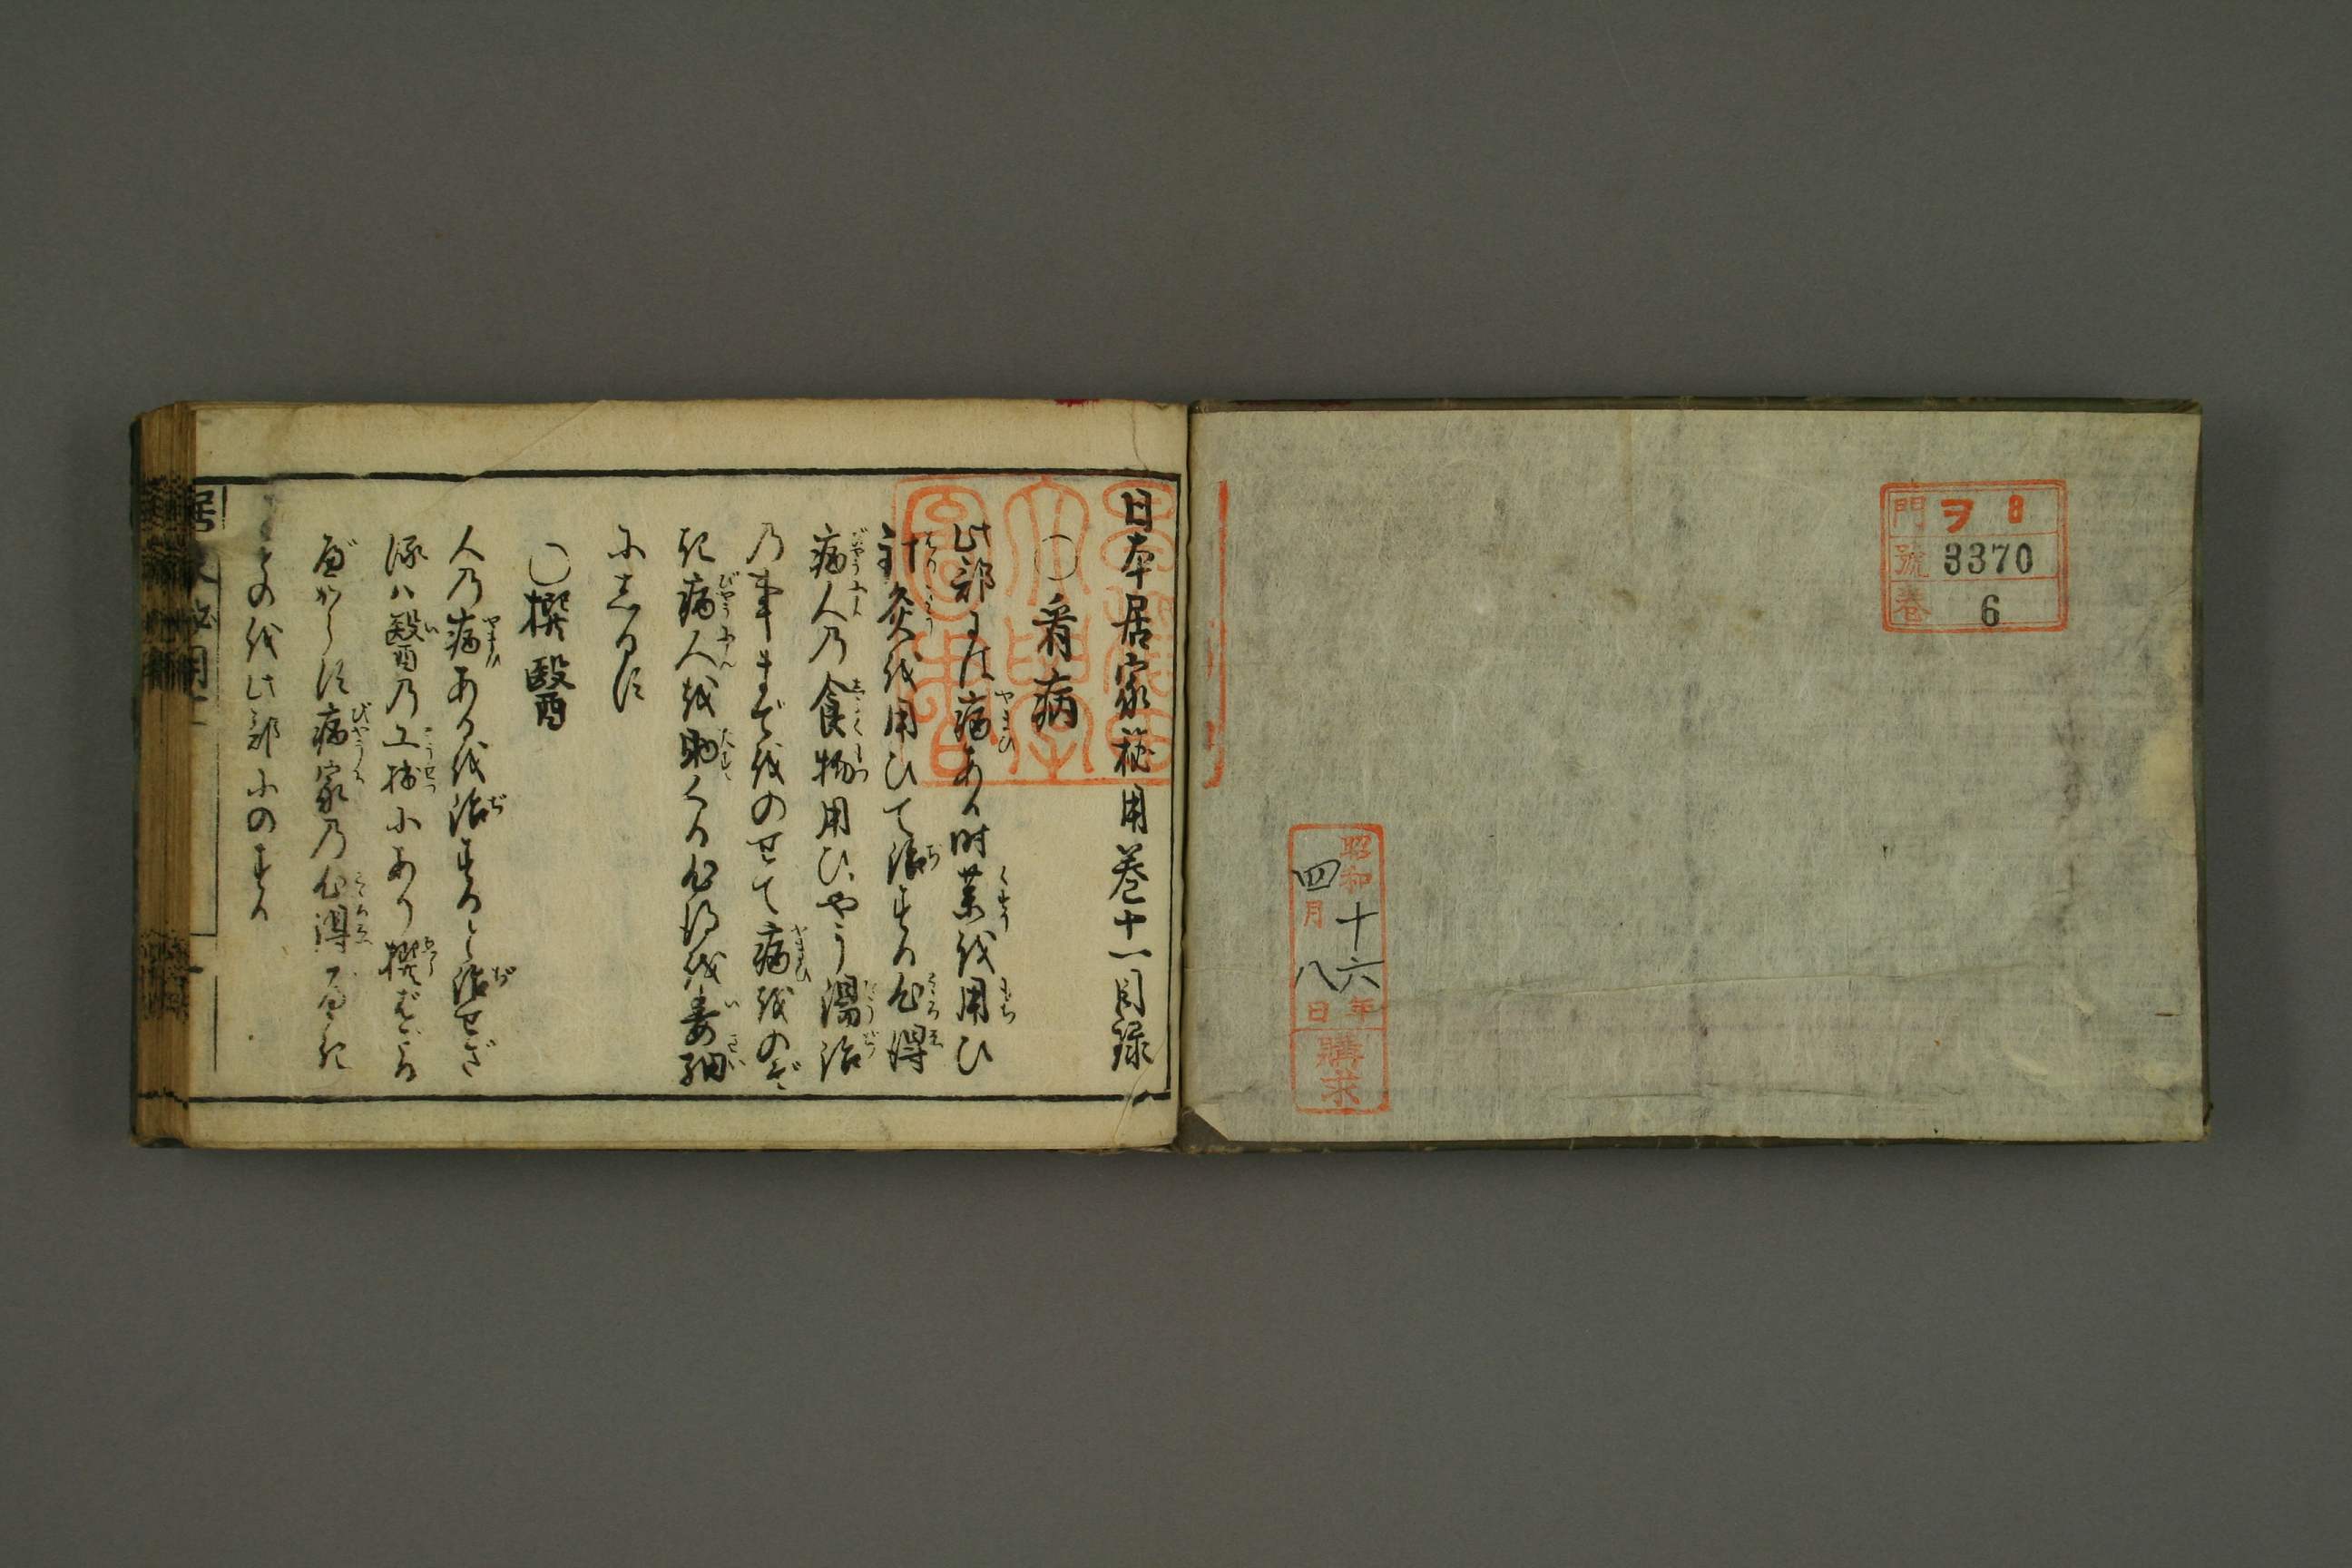 門 ヲ 8
號 3370
卷 6
昭和十六年
四月八日
購求
日本居家秘用巻十一目録
○看病
此部には病ある時薬を用ひ
針灸を用ひて治する心得
病人の食物用ひやう湯治
の事までをのせて病をのぞ
き病人を助くる心得を委細
にしるす
○撰醫
人の病あるを治すると治せざ
るは醫の工拙にあり撰ばずんば
あるべからず病家の心得べき
ことを此部にのする